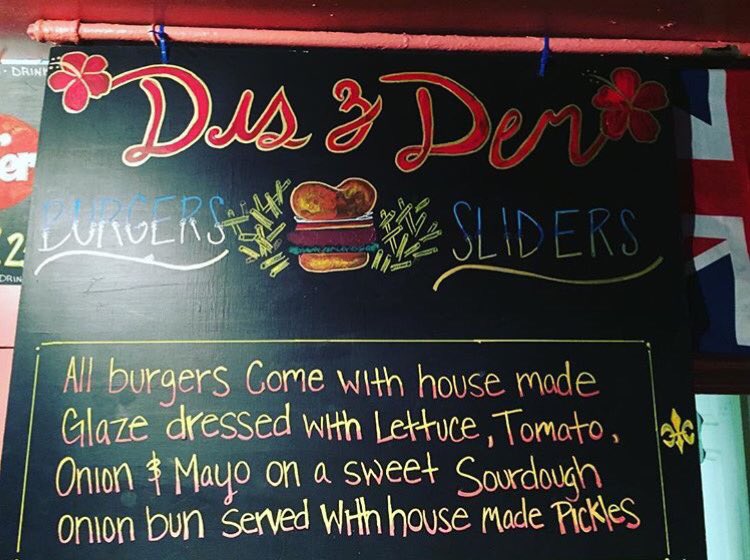 Dis & Dem
BURGERS
SLIDERS
All burgers Come with house made
Glaze dressed with Lettuce, Tomato,
Onion & Mayo on a sweet Sourdough
onion bun served with house made Pickles
DRINK
er
2
DRIN